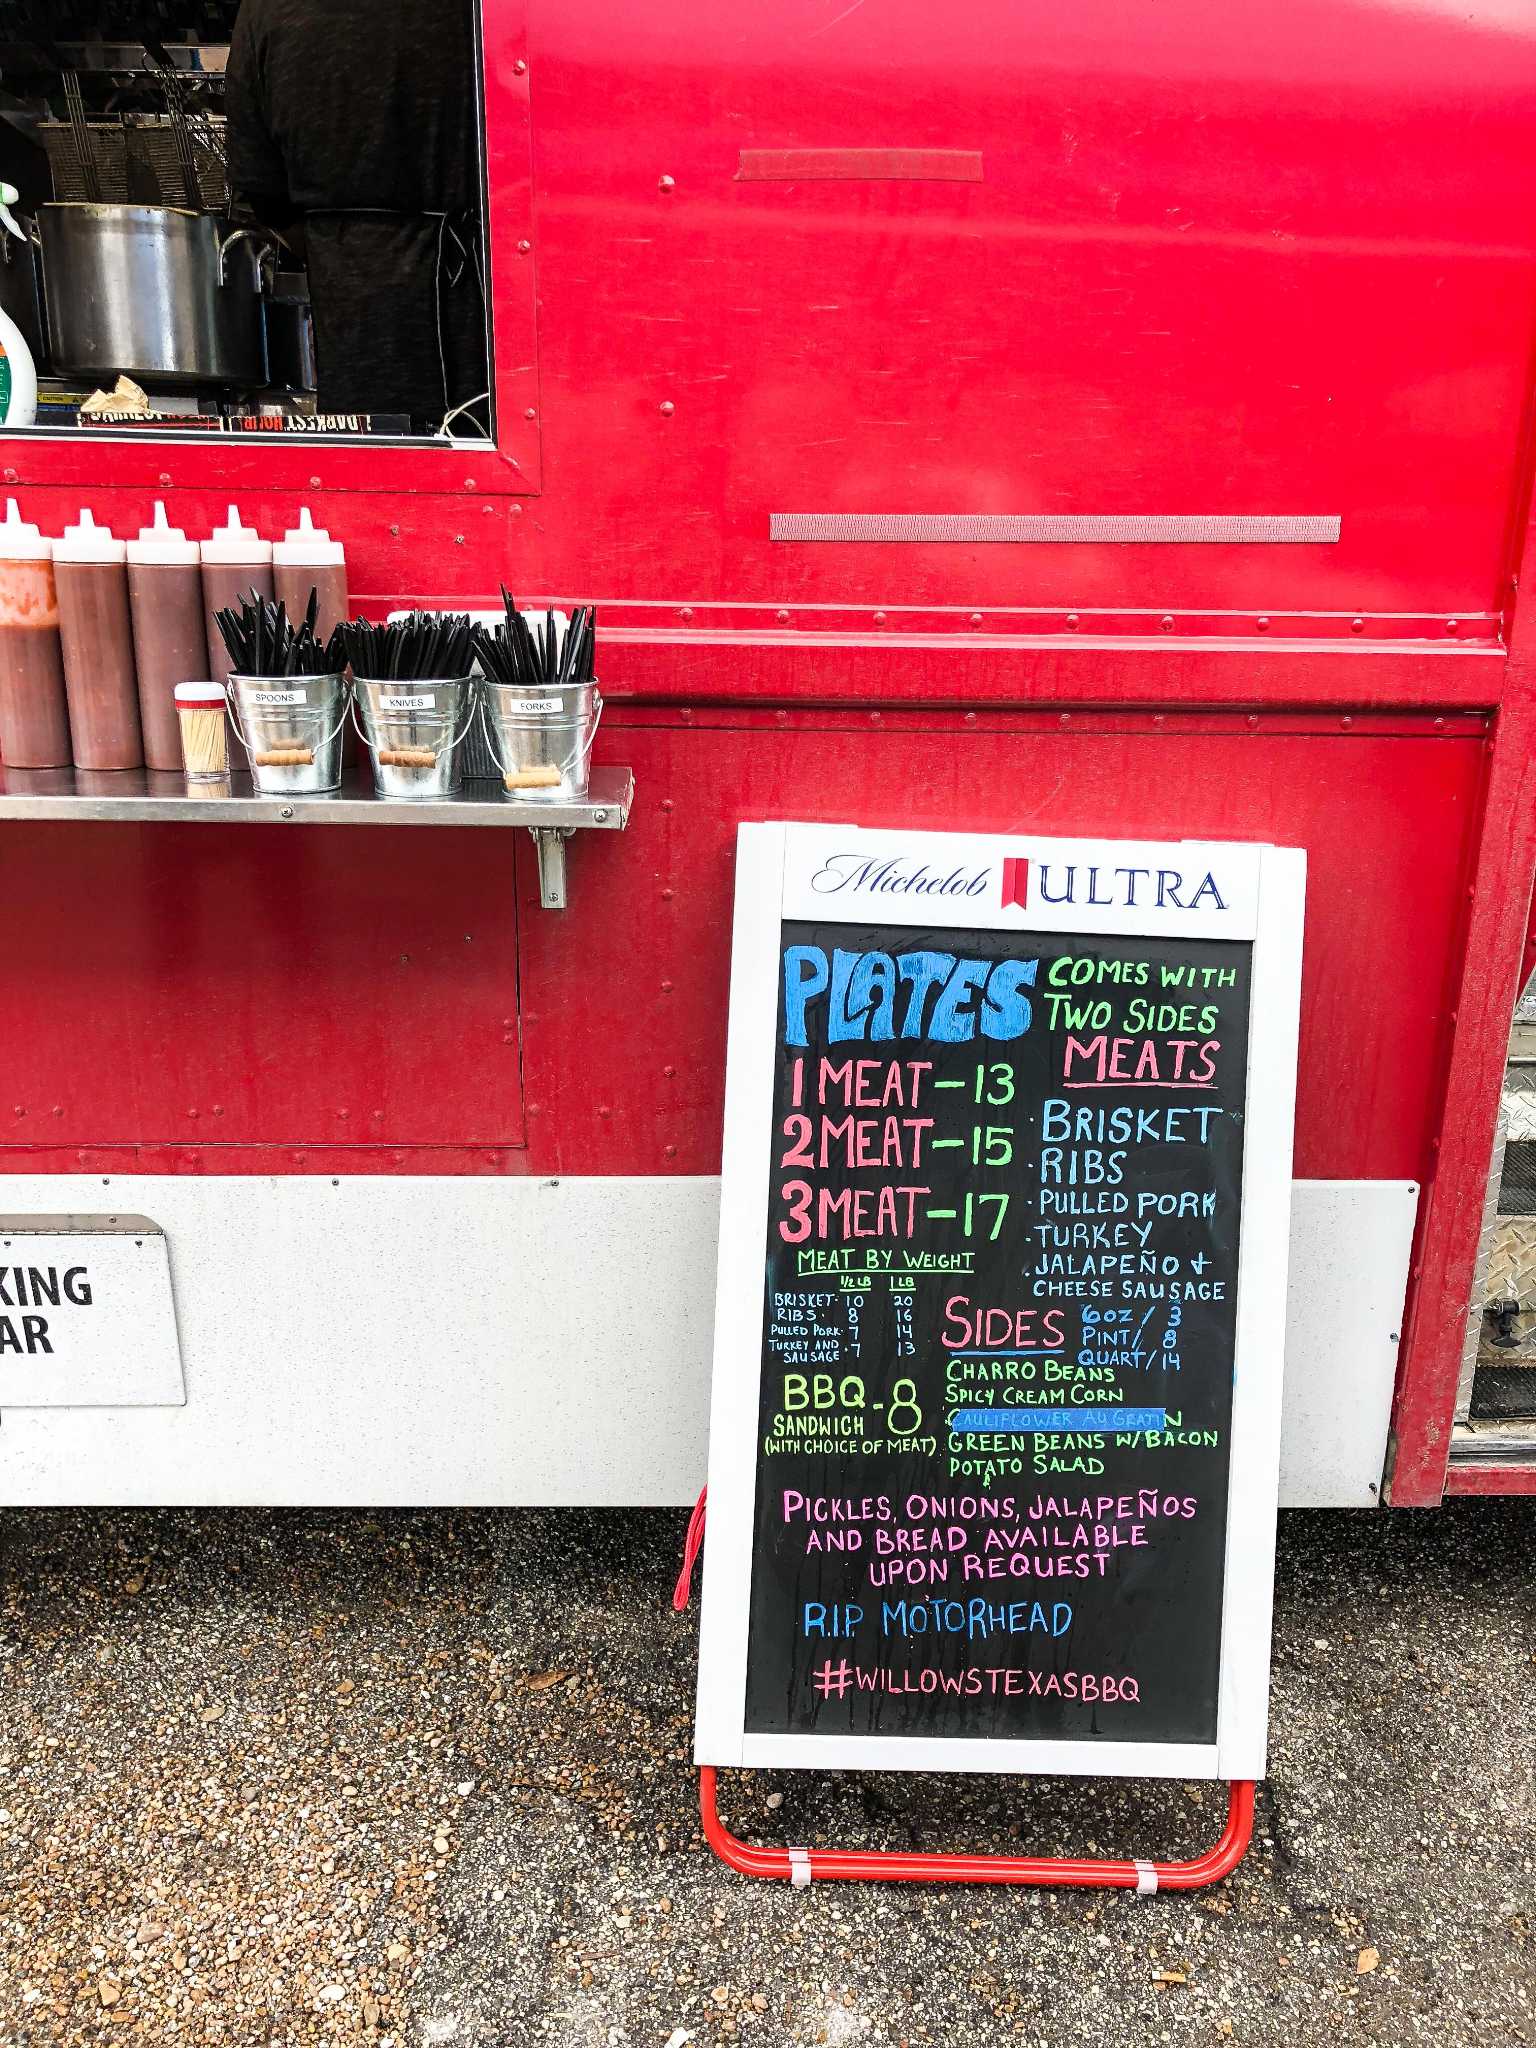 DARKEST HOUR
SPOONS
KNIVES
FORKS
KING
AR
Michelob ULTRA
PLATES COMES WITH
TWO SIDES
1 MEAT - 13
2 MEAT - 15
3 MEAT - 17
MEATS
· BRISKET
· RIBS
· PULLED PORK
· TURKEY
· JALAPEÑO +
CHEESE SAUSAGE
MEAT BY WEIGHT
1/2 LB 1 LB
BRISKET · 10 20
RIBS · 8 16
PULLED PORK · 7 14
TURKEY AND
SAUSAGE · 7 13
BBQ - 8
SANDWICH
(WITH CHOICE OF MEAT)
SIDES 6OZ / 3
PINT / 8
QUART / 14
CHARRO BEANS
SPICY CREAM CORN
CAULIFLOWER AU GRATIN
GREEN BEANS W/ BACON
POTATO SALAD
PICKLES, ONIONS, JALAPEÑOS
AND BREAD AVAILABLE
UPON REQUEST
R.I.P MOTORHEAD
#WILLOWSTEXASBBQ